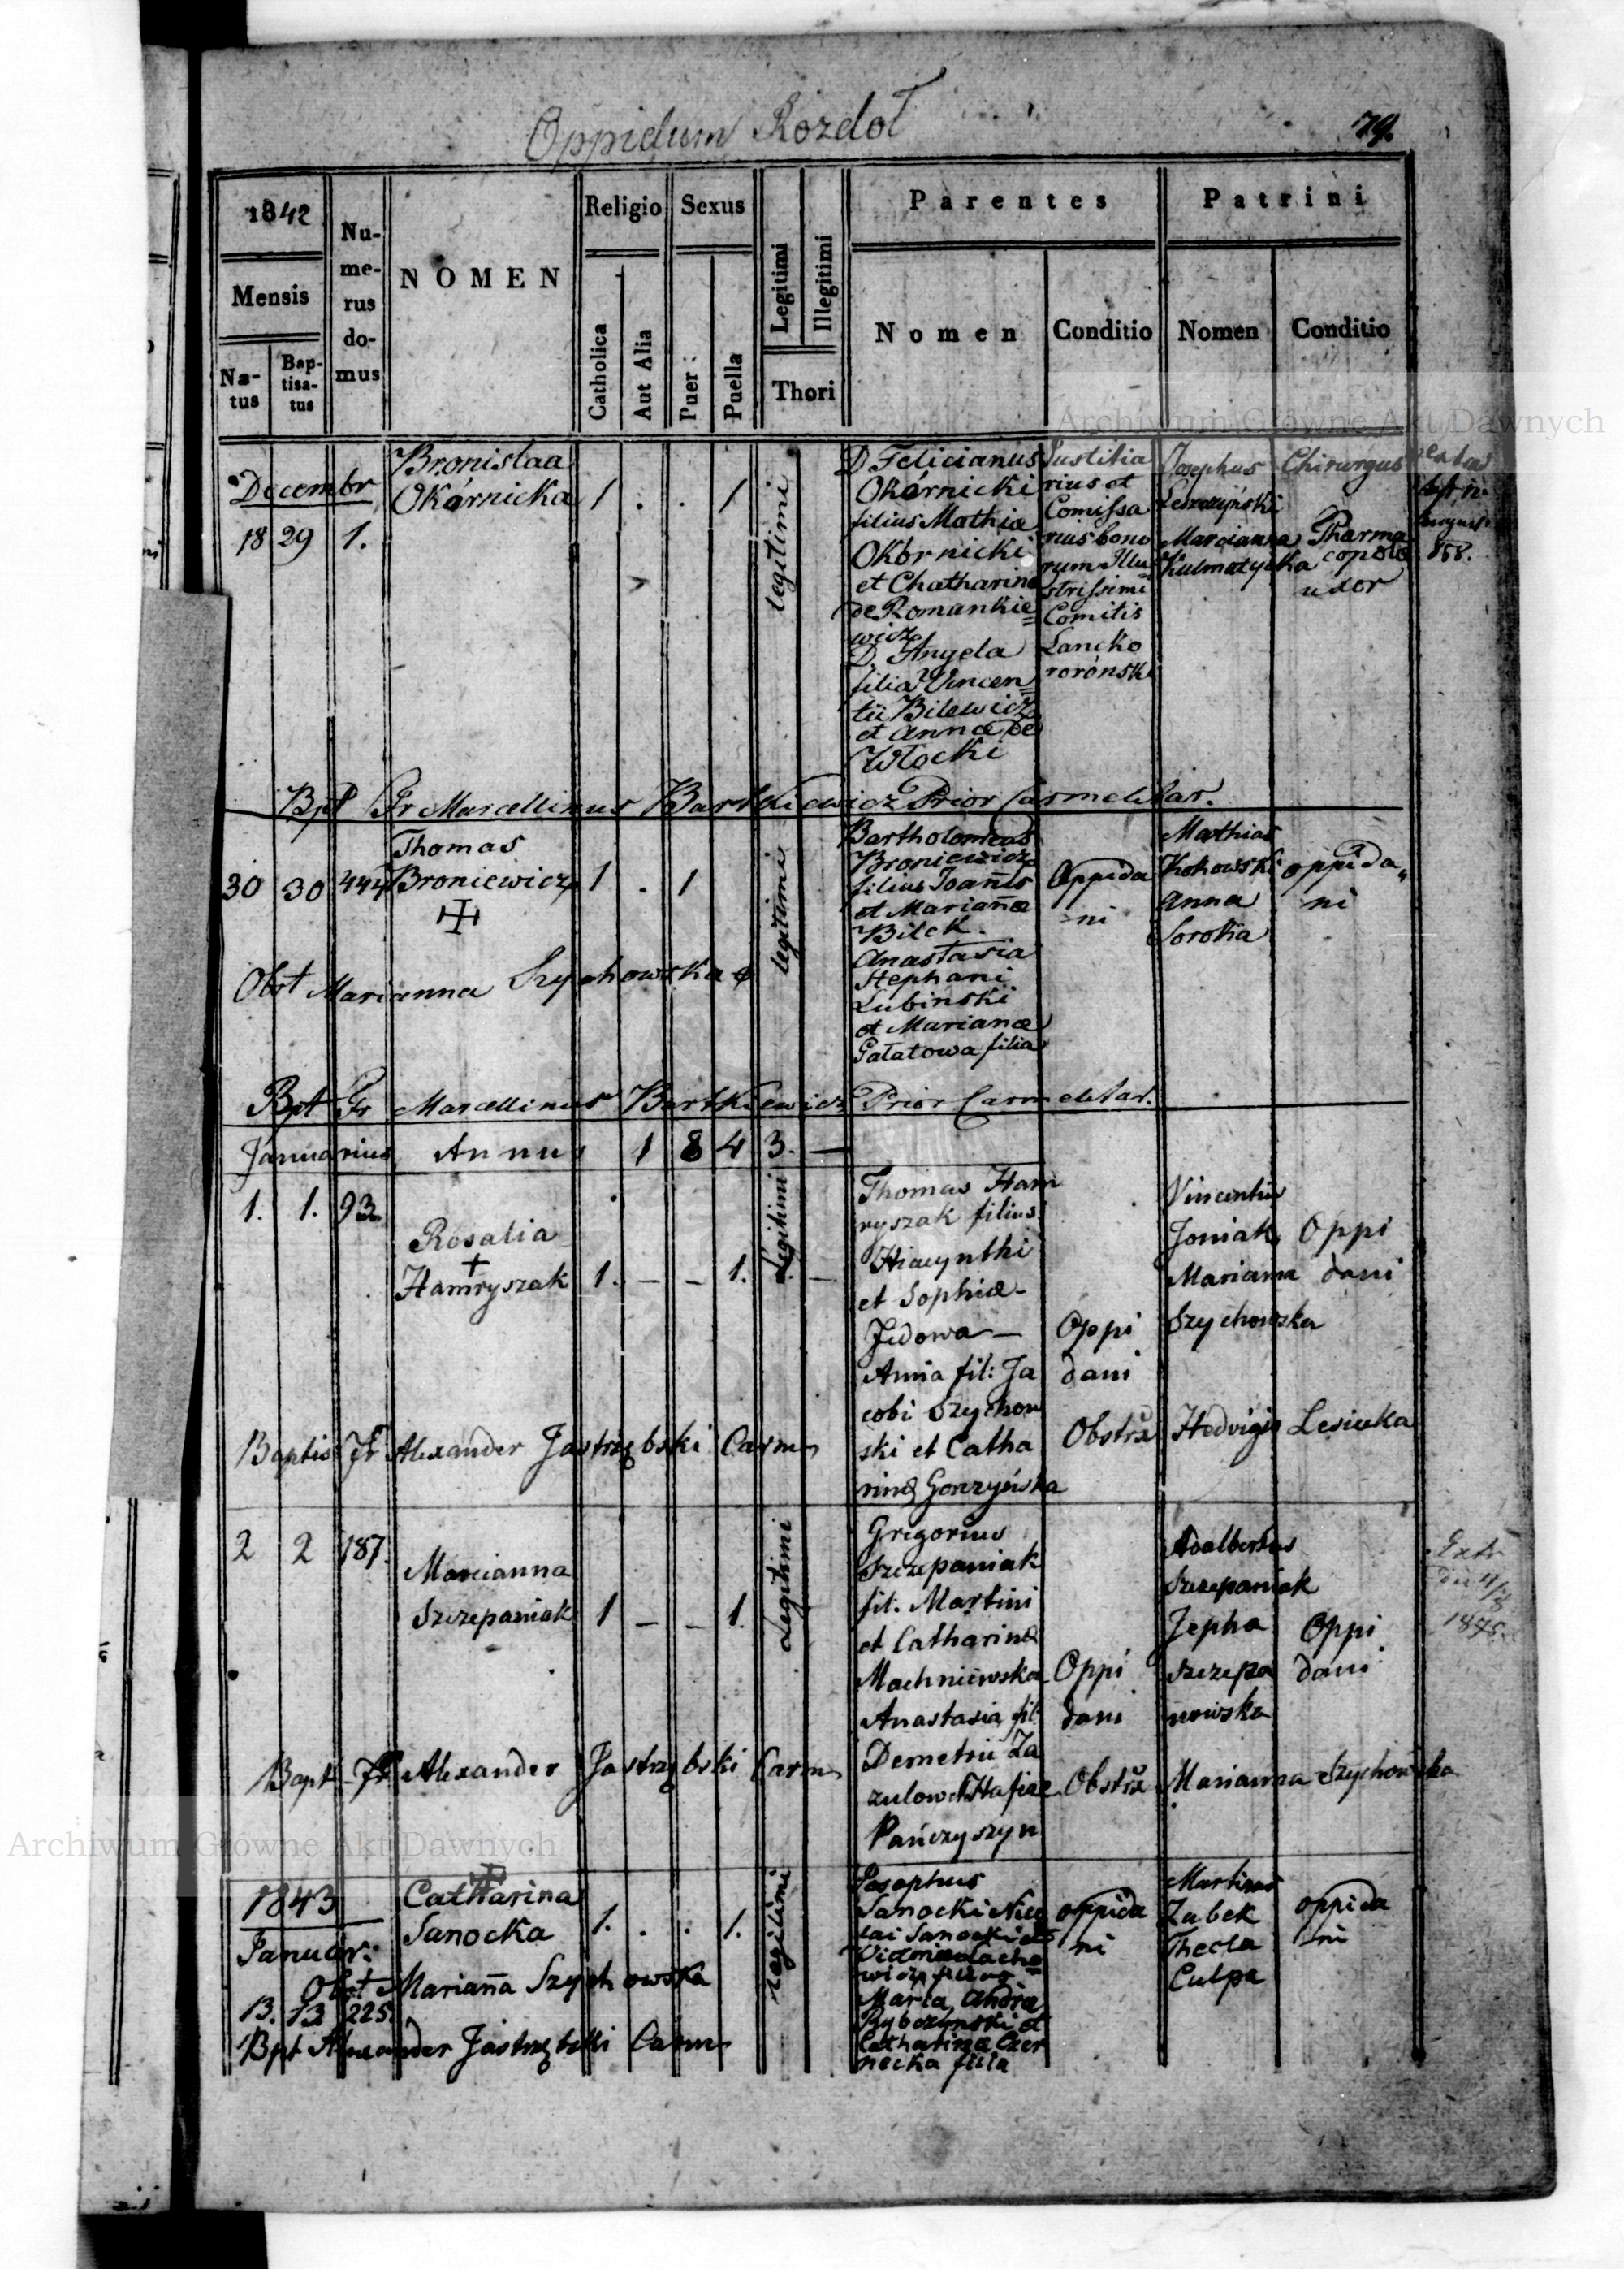 Oppidum Rozdoł
79.
1842
Mensis
Na-
tus
Bap-
tisa-
tus
Nu-
me-
rus
do-
mus
NOMEN
Religio
Catholica
Aut Alia
Sexus
Puer:
Puella
Legitimi
Illegitimi
Thori
Parentes
Nomen
Conditio
Patrini
Nomen
Conditio
Archiwum Główne Akt Dawnych
Decembr
18 29 1.
Bronislaa
Okórnicka
1 . . 1
legitimi
D Felicianus
Okórnicki
filius Mathiæ
Okórnicki
et Chatharinæ
de Romankie=
wicz
D. Angela
filia Vincen=
tii Bilewicz
et Annæ De
Włocki
Justitia
rius et
Comissa
rius bono
rum Illu=
strissimi
Comitis
Lancko
rorónski
Josephus
Leszczyński
Marcianna
Kulmatycka
Chirurgus
Pharma
copolo
uxor
858.
Bpt Fr Marcellinus Bartkiewicz Prior Carmelitar.
30 30 444
Thomas
Broniewicz
1 . 1
legitimi
Bartholomeus
Broniewicz
filius Joannis
et Mariañæ
Bilek.
Anastasia
Stephani
Lubinski
et Marianæ
Gałatowa filia
Oppida
ni
Mathias
Kokowski
Anna
Soroka
oppida„
ni
Obst Marianna Szychowska
Bpt Fr Marcellinus Bartkiewicz Prior Carmelitar.
Januarius Annus 1 8 4 3. —
1. 1. 93
Rosalia
Hamryszak
1. — — 1. —
Legitimi
Thomas Ham
ryszak filius
Hiacynthi
et Sophiæ
Jedowa —
Anna fil: Ja
cobi Szychow
ski et Catha
rinæ Gorzyńska
Oppi
dani
Vincentius
Joniak
Marianna
Szychowska
Oppi
dani
Baptis Fr Alexander Jastrzębski Carm
Obstrx Hedvigis Lesiuka
2 2 187.
Marianna
Szczepaniak
1 — — 1.
Legitimi
Gregorius
Szczepaniak
fil. Martini
et Catharinæ
Machniewska
Anastasia fil:
Demetrii Za
zulow et Hafiæ
Pańczyszyn
Oppi
dani
Adalbertus
Szczepaniak
Jepha
Szczepa
nowska
Oppi
dani
Extr
Bapt Fr Alexander Jastrzębski Carm
Obstrx Marianna Szychowska
Archiwum Główne Akt Dawnych
1843
Januar:
13. 13 225.
Catharina
Sanocka
1. . . 1.
legitimi
Josephus
Sanocki Nico
lai Sanocki et
Maria, Andreæ
Rybczynski et
Catharinæ Czer
necka filia
oppida
ni
Martinus
Zubek
Thecla
Culpa
oppida
ni
Obst Mariañna Szychowska
Bpt Alexander Jastrzębski Carm